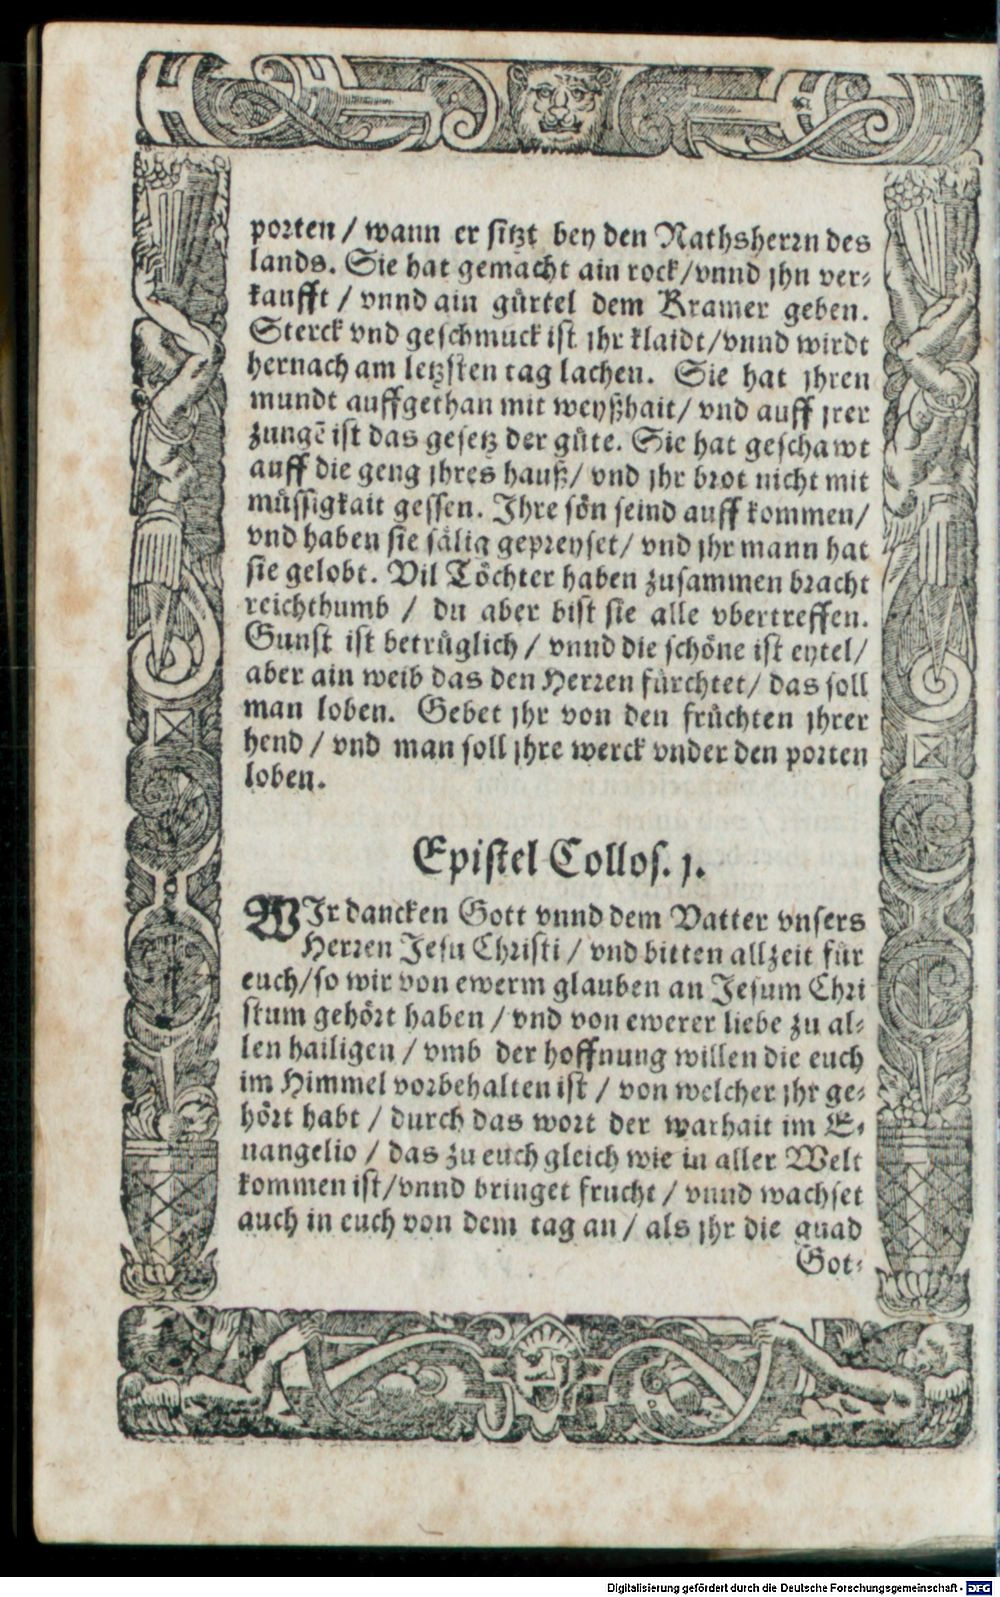 porten / wann er sitzt bey den Rathsherrn des
lands. Sie hat gemacht ain rock/vnnd jhn ver⸗
kaufft / vnnd ain gürtel dem Kramer geben.
Sterck vnd geschmuck ist jhr klaidt/vnnd wirdt
hernach am letzsten tag lachen. Sie hat jhren
mundt auffgethan mit weyßhait/ vnd auff jrer
zungẽ ist das gesetz der güte. Sie hat geschawt
auff die geng jhres hauß/ vnd jhr brot nicht mit
müssigkait gessen. Ihre sön seind auff kommen/
vnd haben sie sälig gepreyset/ vnd jhr mann hat
sie gelobt. Vil Töchter haben zusammen bracht
reichthumb / du aber bist sie alle vbertreffen.
Gunst ist betrüglich / vnnd die schöne ist eytel/
aber ain weib das den Herren fürchtet/ das soll
man loben. Gebet jhr von den früchten jhrer
hend / vnd man soll jhre werck vnder den porten
loben.
Epistel Collos. j.
WIr dancken Gott vnnd dem Vatter vnsers
Herren Jesu Christi / vnd bitten allzeit für
euch/so wir von ewerm glauben an Jesum Chri
stum gehört haben / vnd von ewerer liebe zu al⸗
len hailigen / vmb der hoffnung willen die euch
im Himmel vorbehalten ist / von welcher jhr ge⸗
hört habt / durch das wort der warhait im E⸗
uangelio / das zu euch gleich wie in aller Welt
kommen ist/vnnd bringet frucht / vnnd wachset
auch in euch von dem tag an / als jhr die gnad
Got⸗
Digitalisierung gefördert durch die Deutsche Forschungsgemeinschaft - DFG